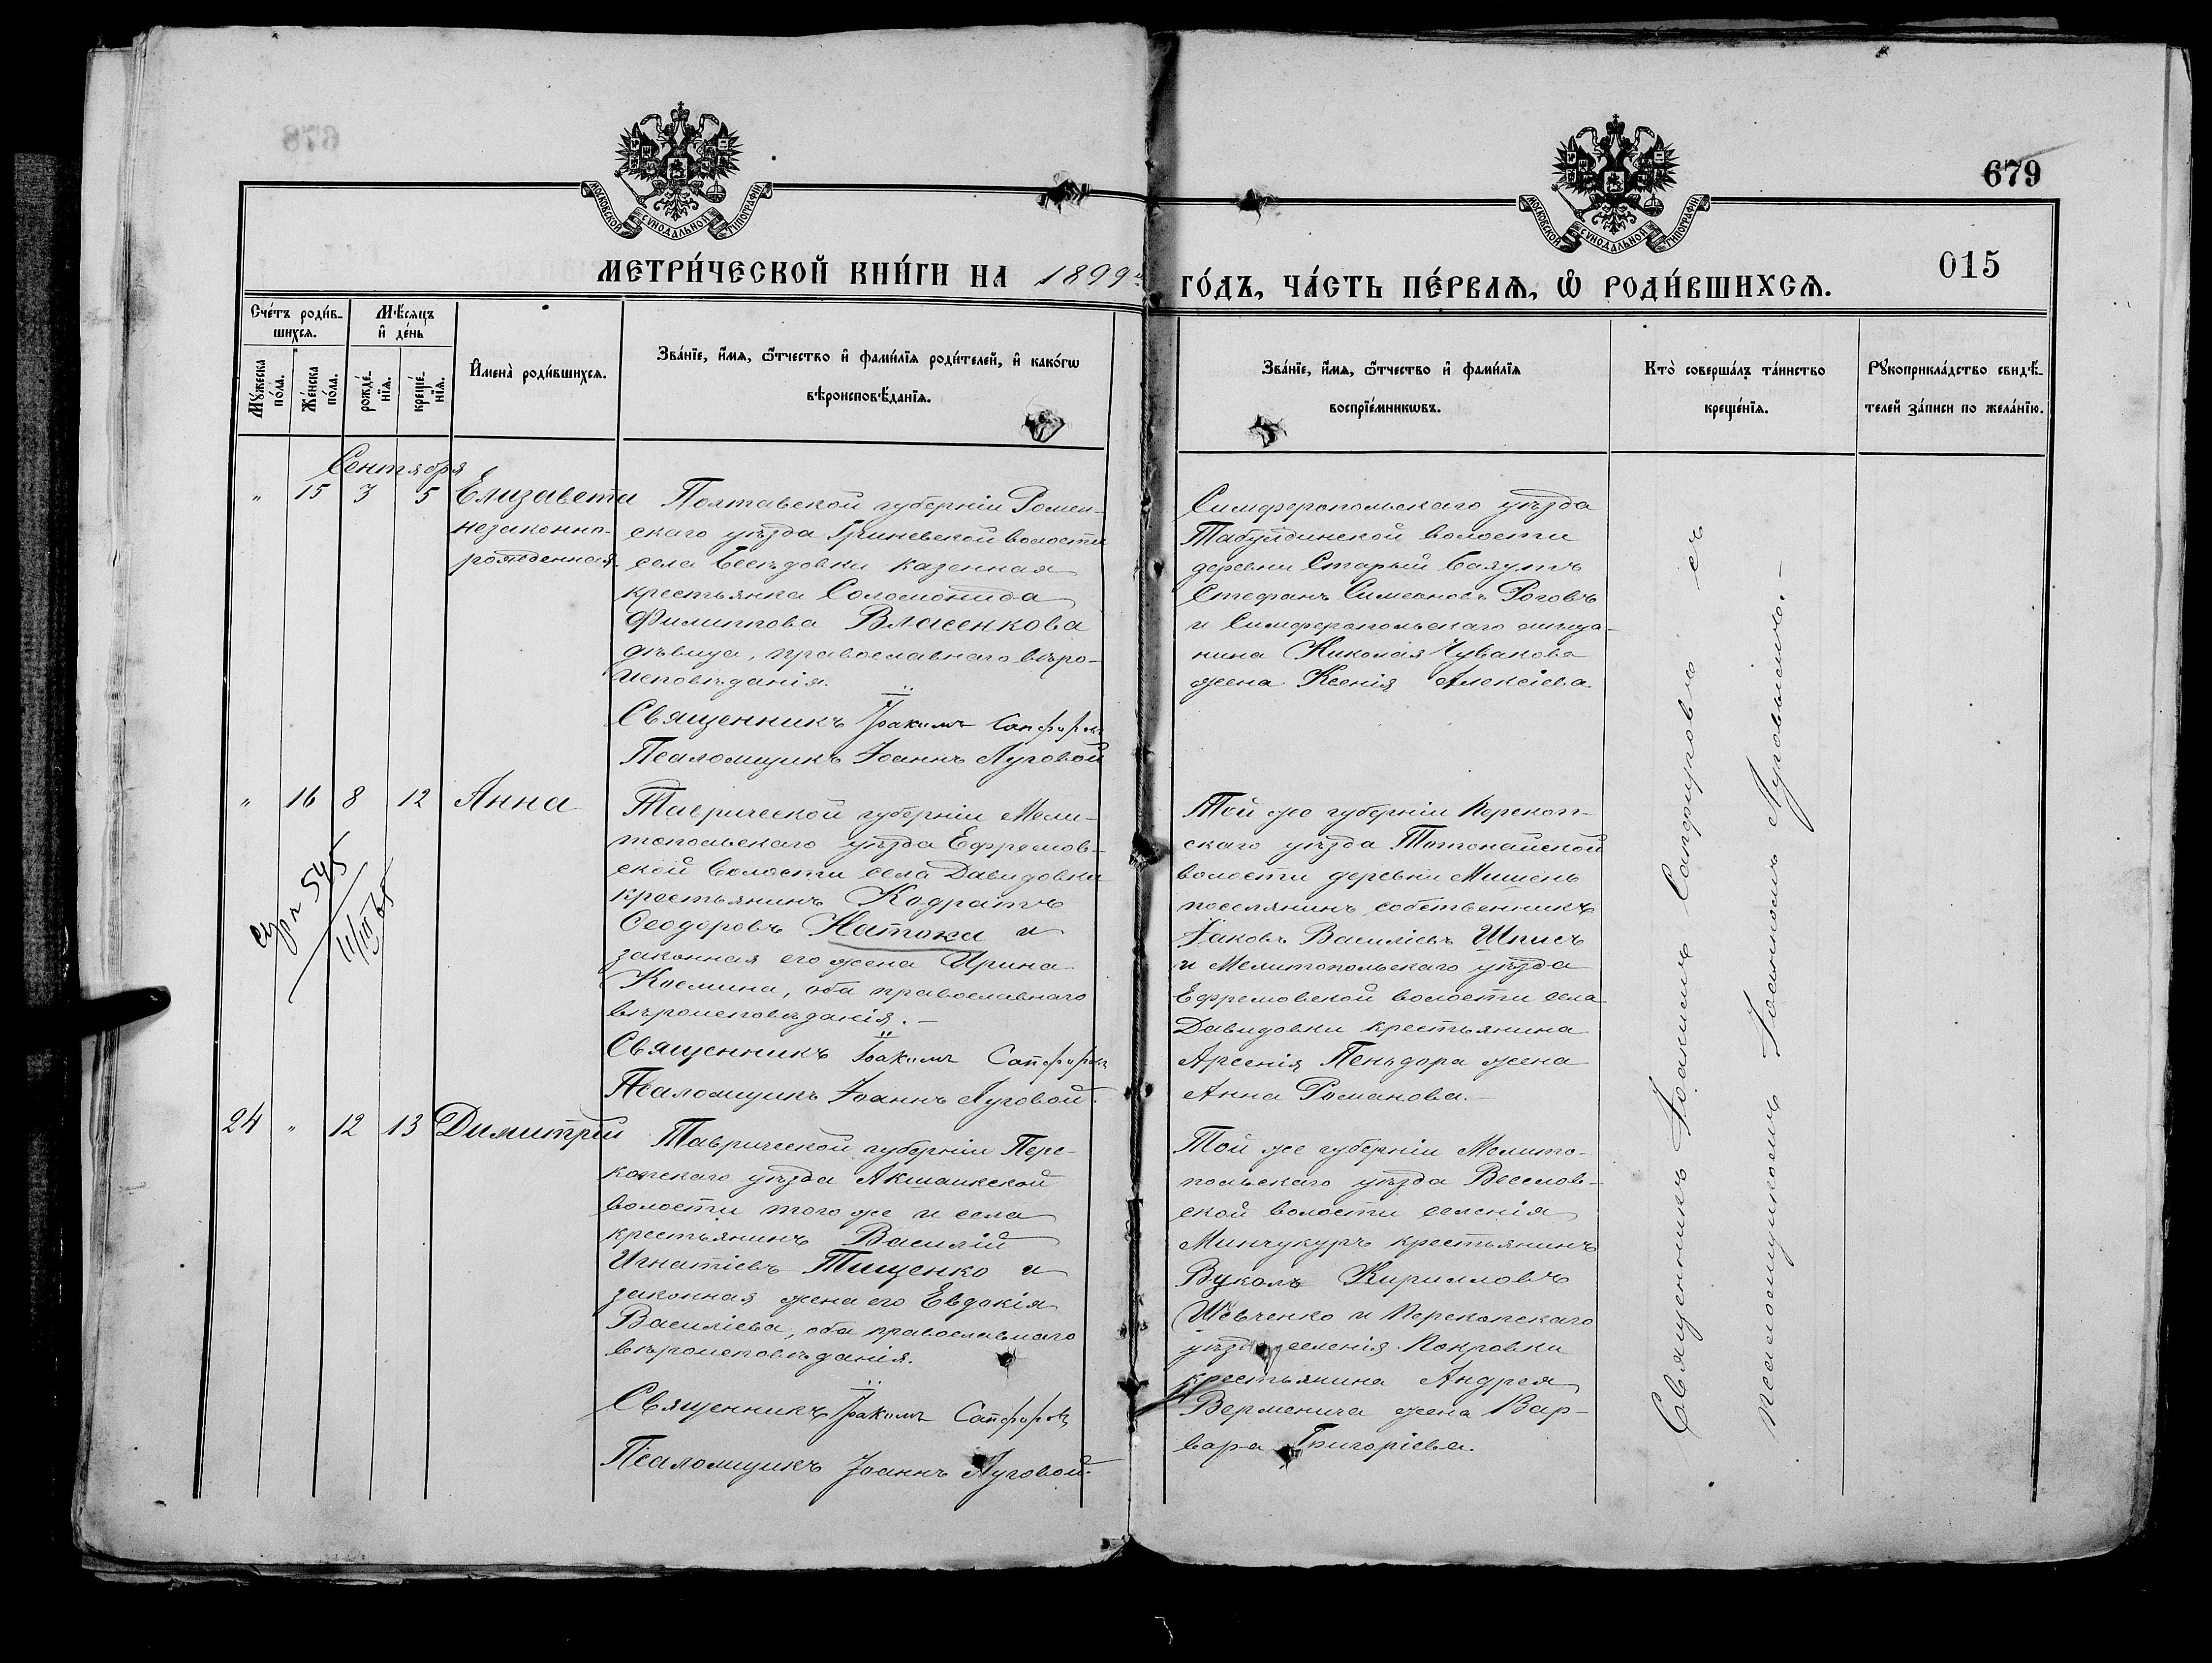 679
015
МОСКОВСКОЙ СѴНОДАЛЬНОЙ ТИПОГРАФІИ
МОСКОВСКОЙ СѴНОДАЛЬНОЙ ТИПОГРАФІИ
МЕТРИ́ЧЕСКОЙ КНИ́ГИ НА 1899й ГО́ДЪ, ЧА́СТЬ ПЕ́РВАѦ, Ѽ РОДИ́ВШИХСѦ.
Сче́тъ роди́в-
шихсѧ.
Мꙋ́жеска по́ла.
Же́нска по́ла.
Мѣ́сѧцъ
и҆ де́нь
рожде́-
нїѧ.
креще́-
нїѧ.
И҆мена̀ роди́вшихсѧ.
Зва́нїе, и҆́мѧ, ѻ҆́тчество и҆ фами́лїѧ роди́телей, и҆ како́гѡ
вѣроисповѣ́данїѧ.
Зва́нїе, и҆́мѧ, ѻ҆́тчество и҆ фами́лїѧ
воспрїе́мникѡвъ.
Кто̀ соверша́лъ та́инство
креще́нїѧ.
Рꙋкоприкла́дство свидѣ́-
телей за́писи по жела́нїю.
Сентября
" 15 3 5 Елизавета
незаконно-
рожденная
Полтавской губерніи Ромен-
скаго уѣзда Гриневской волости
села Бесѣдовки казенная
крестьянка Соломонида
Филиппова Власенкова
дѣвица, православнаго вѣро-
исповѣданія.
Священникъ Іоакимъ Сапфировъ
Псаломщикъ Іоаннъ Луговой
Симферопольскаго уѣзда
Табулдинской волости
деревни Старый Баяутъ
Стефанъ Симеоновъ Роговъ
и Симферопольскаго мѣща-
нина Николая Чувакова
жена Ксенія Алексіева.
" 16 8 12 Анна
545
Таврической губерніи Мели-
топольскаго уѣзда Ефремов-
ской волости села Давидовки
крестьянинъ Кодратъ
Ѳеодоровъ Натока и
законная его жена Ирина
Космина, оба православнаго
вѣроисповѣданія.-
Священникъ Іоакимъ Сапфировъ
Псаломщикъ Іоаннъ Луговой.
Той же губерніи Перекоп-
скаго уѣзда Тотонайской
волости деревни Мишень
поселянинъ собственникъ
Іаковъ Василіевъ Шписъ
и Мелитопольскаго уѣзда
Ефремовской волости села
Давидовки крестьянина
Арсенія Пеньдора жена
Анна Романова.-
24 " 12 13 Димитрій
Таврической губерніи Пере-
копскаго уѣзда Акшаикской
волости того же и села
крестьянинъ Василій
Игнатіевъ Тищенко и
законная жена его Евдокія
Василіева, оба православнаго
вѣроисповѣданія.
Священникъ Іоакимъ Сапфировъ
Псаломщикъ Іоаннъ Луговой.
Той же губерніи Мелито-
польскаго уѣзда Веселов-
ской волости селенія
Минчукуръ крестьянинъ
Вуколъ Кирилловъ
Шевченко и Перекопскаго
уѣзда селенія Покровки
крестьянина Андрея
Верменича жена Вар-
вара Григоріева.
Священникъ Іоакимъ Сапфировъ съ
псаломщикомъ Іоанномъ Луговымъ.-